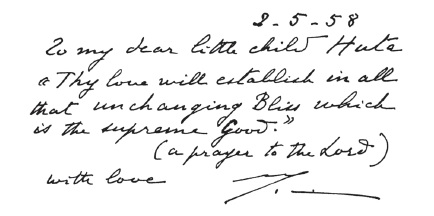 2-5-58
To my dear little child Huta
"Thy love will establish in all
that unchanging Bliss which
is the supreme Good."
(a prayer to the Lord)
with love